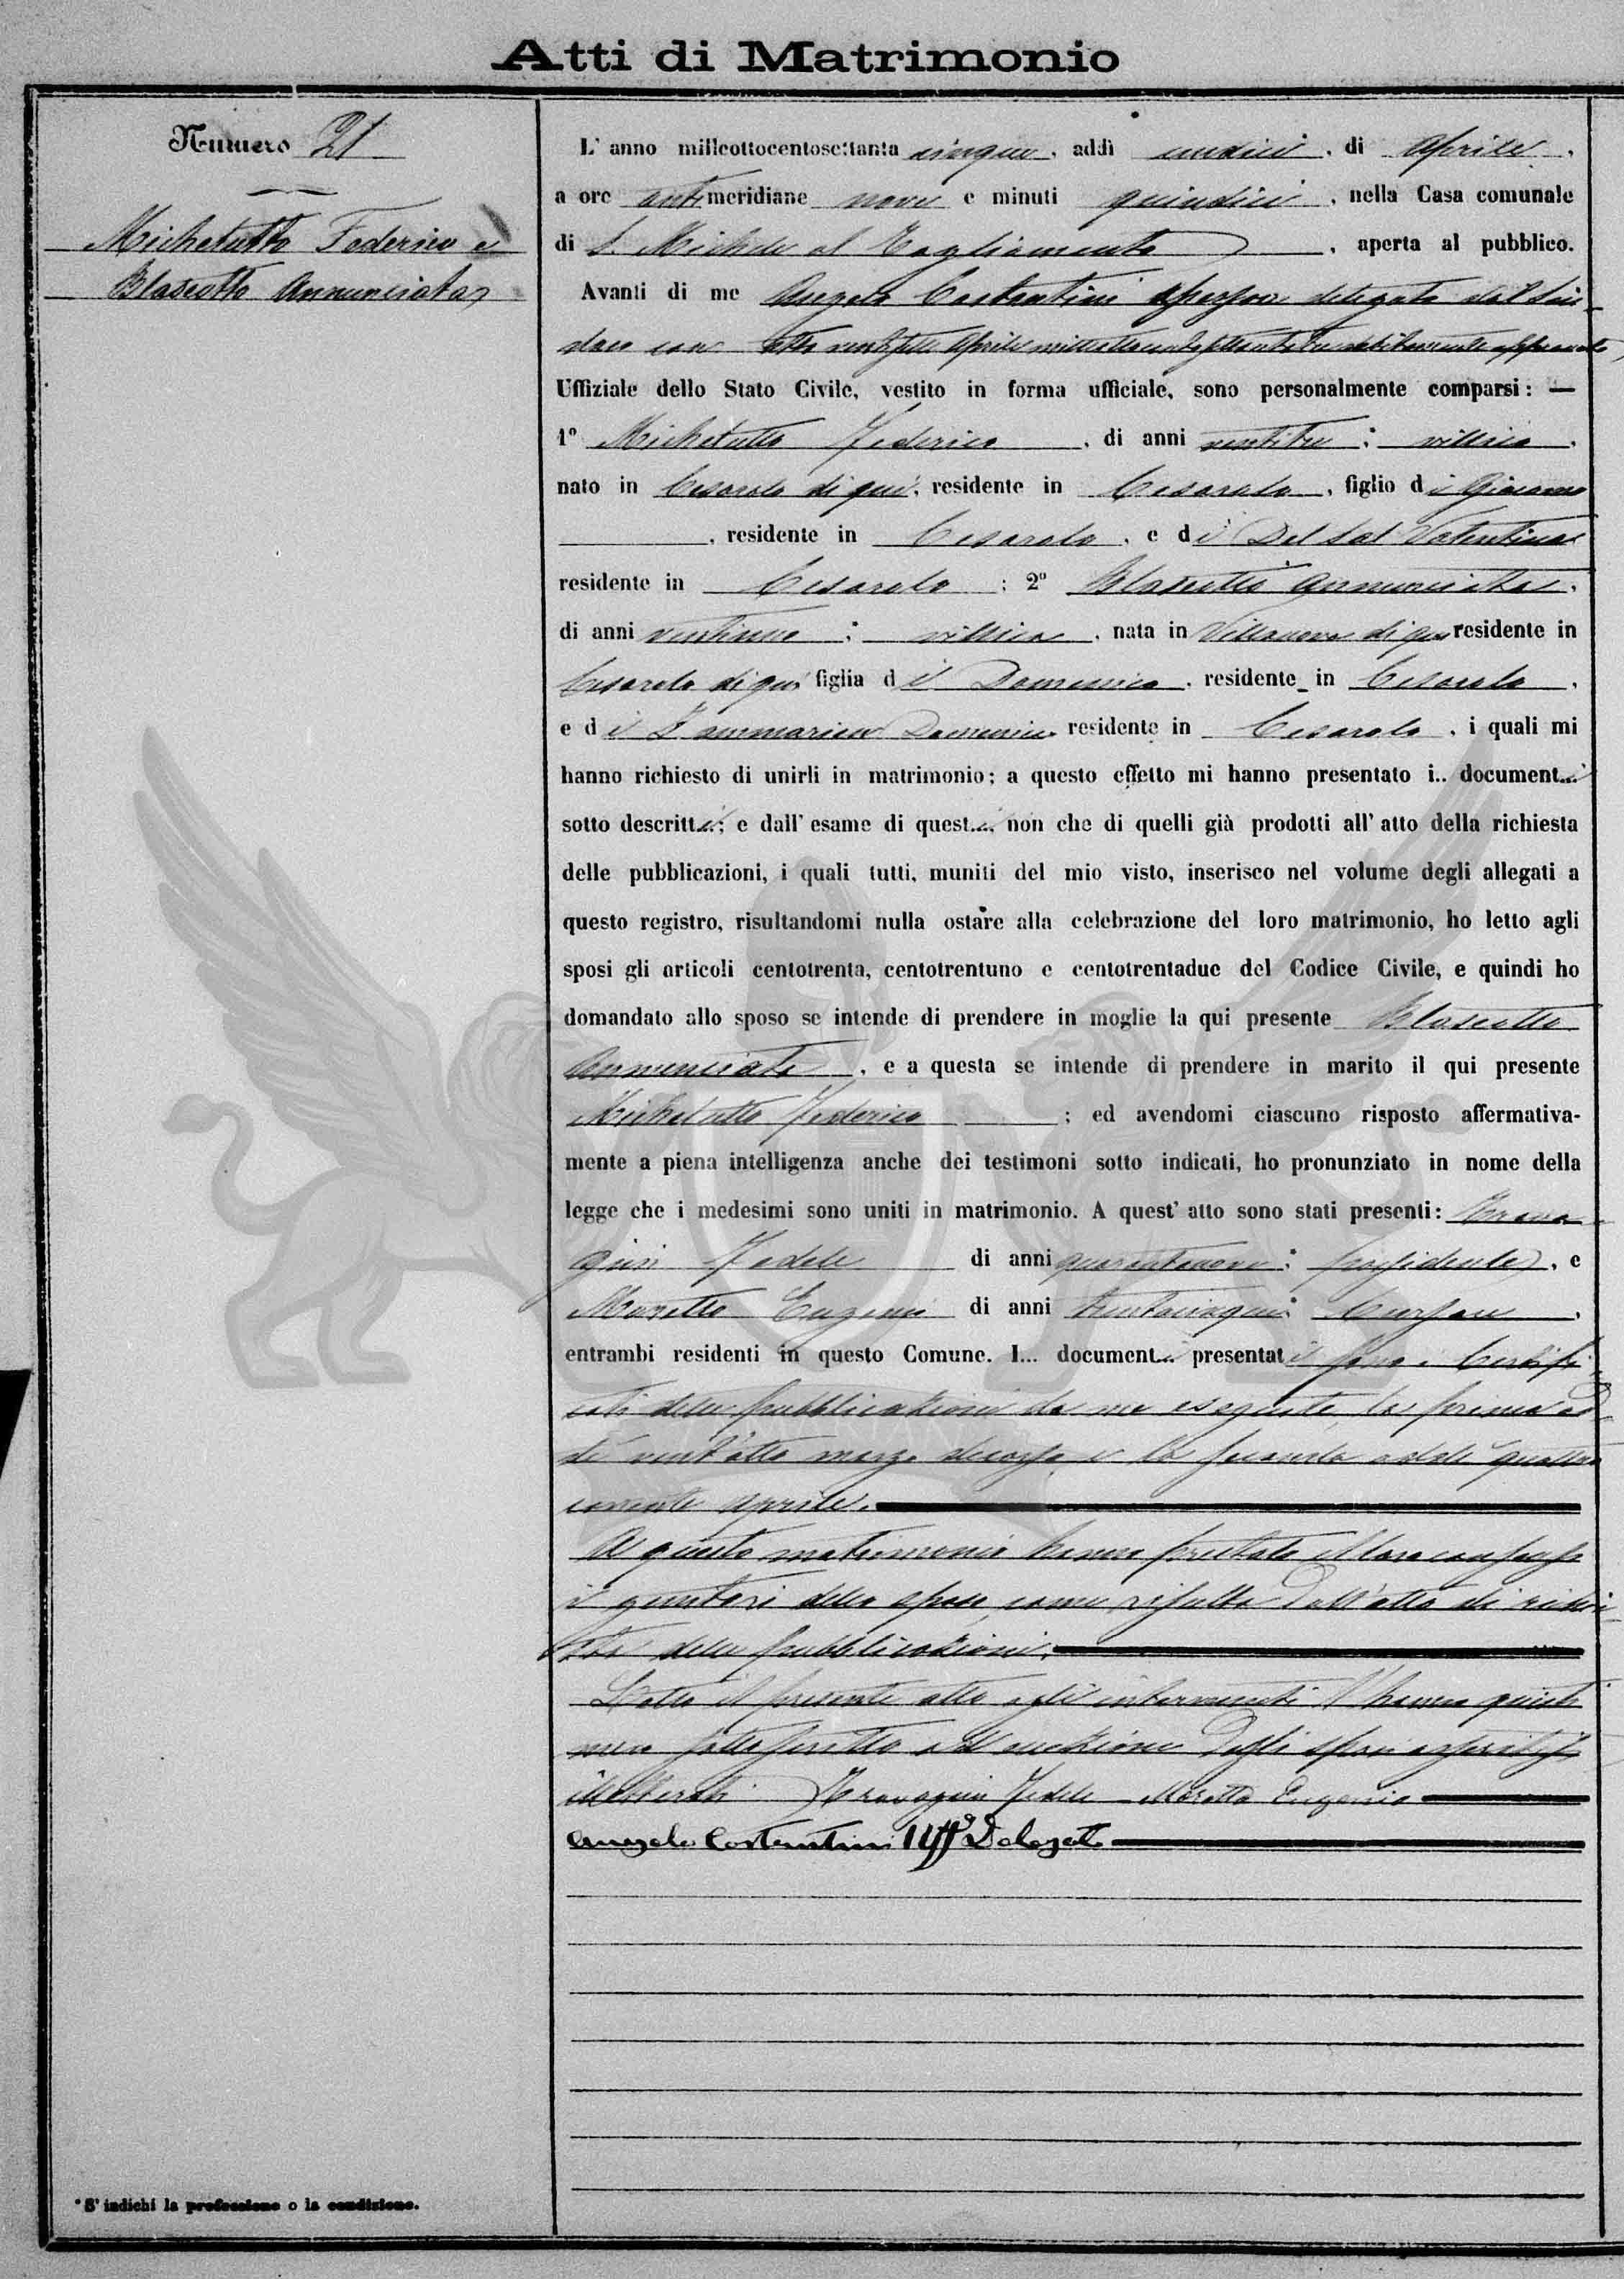 Atti di Matrimonio
Numero 21
Michelutto Federico e
Blasotto Annunciata
L' anno millcottocentosettanta cinque, addì undici, di Aprile,
a ore antimeridiane nove e minuti quindici, nella Casa comunale
di S. Michele al Tagliamento, aperta al pubblico.
Avanti di me Angelo Costantini Assessore delegato dal Sin-
daco con atto ventisette Aprile milleottocentosettantatre debitamente approvato,
Uffiziale dello Stato Civile, vestito in forma ufficiale, sono personalmente comparsi: —
1º Michelutto Federico, di anni ventitre; villico,
nato in Cesarolo di qui, residente in Cesarolo, figlio di Giacomo
, residente in Cesarolo, e di Del Sal Valentina
residente in Cesarolo; 2º Blasotto Annunciata,
di anni ventinove; villica, nata in Villanova di qui residente in
Cesarolo di qui figlia di Domenico, residente in Cesarolo,
e di Domenica residente in Cesarolo, i quali mi
hanno richiesto di unirli in matrimonio; a questo effetto mi hanno presentato i.. document...i
sotto descritt..i; e dall' esame di quest..i, non che di quelli già prodotti all' atto della richiesta
delle pubblicazioni, i quali tutti, muniti del mio visto, inserisco nel volume degli allegati a
questo registro, risultandomi nulla ostare alla celebrazione del loro matrimonio, ho letto agli
sposi gli articoli centotrenta, centotrentuno e centotrentadue del Codice Civile, e quindi ho
domandato allo sposo se intende di prendere in moglie la qui presente Blasotto
Annunciata, e a questa se intende di prendere in marito il qui presente
Michelutto Federico; ed avendomi ciascuno risposto affermativa-
mente a piena intelligenza anche dei testimoni sotto indicati, ho pronunziato in nome della
legge che i medesimi sono uniti in matrimonio. A quest' atto sono stati presenti: Trava-
gin Fedele di anni quarantanove; possidente, e
Moretto Eugenio di anni trentacinque; Cursore,
entrambi residenti in questo Comune. I... document..i presentati sono i Certifi-
cati delle pubblicazioni da me eseguite, la prima ad-
dì vent'otto marzo decorso e la seconda addì quattro
corrente aprile.
A questo matrimonio hanno prestato il loro consenso
i genitori dello sposo come risulta dall'atto di richie-
sta delle pubblicazioni.
Letto il presente atto agli intervenuti l'hanno quindi
meco sottoscritto ad eccezione degli sposi
illetterati. Travagin Fedele Moretto Eugenio
Angelo Costantini Uff Delegato
* S' indichi la professione o la condizione.